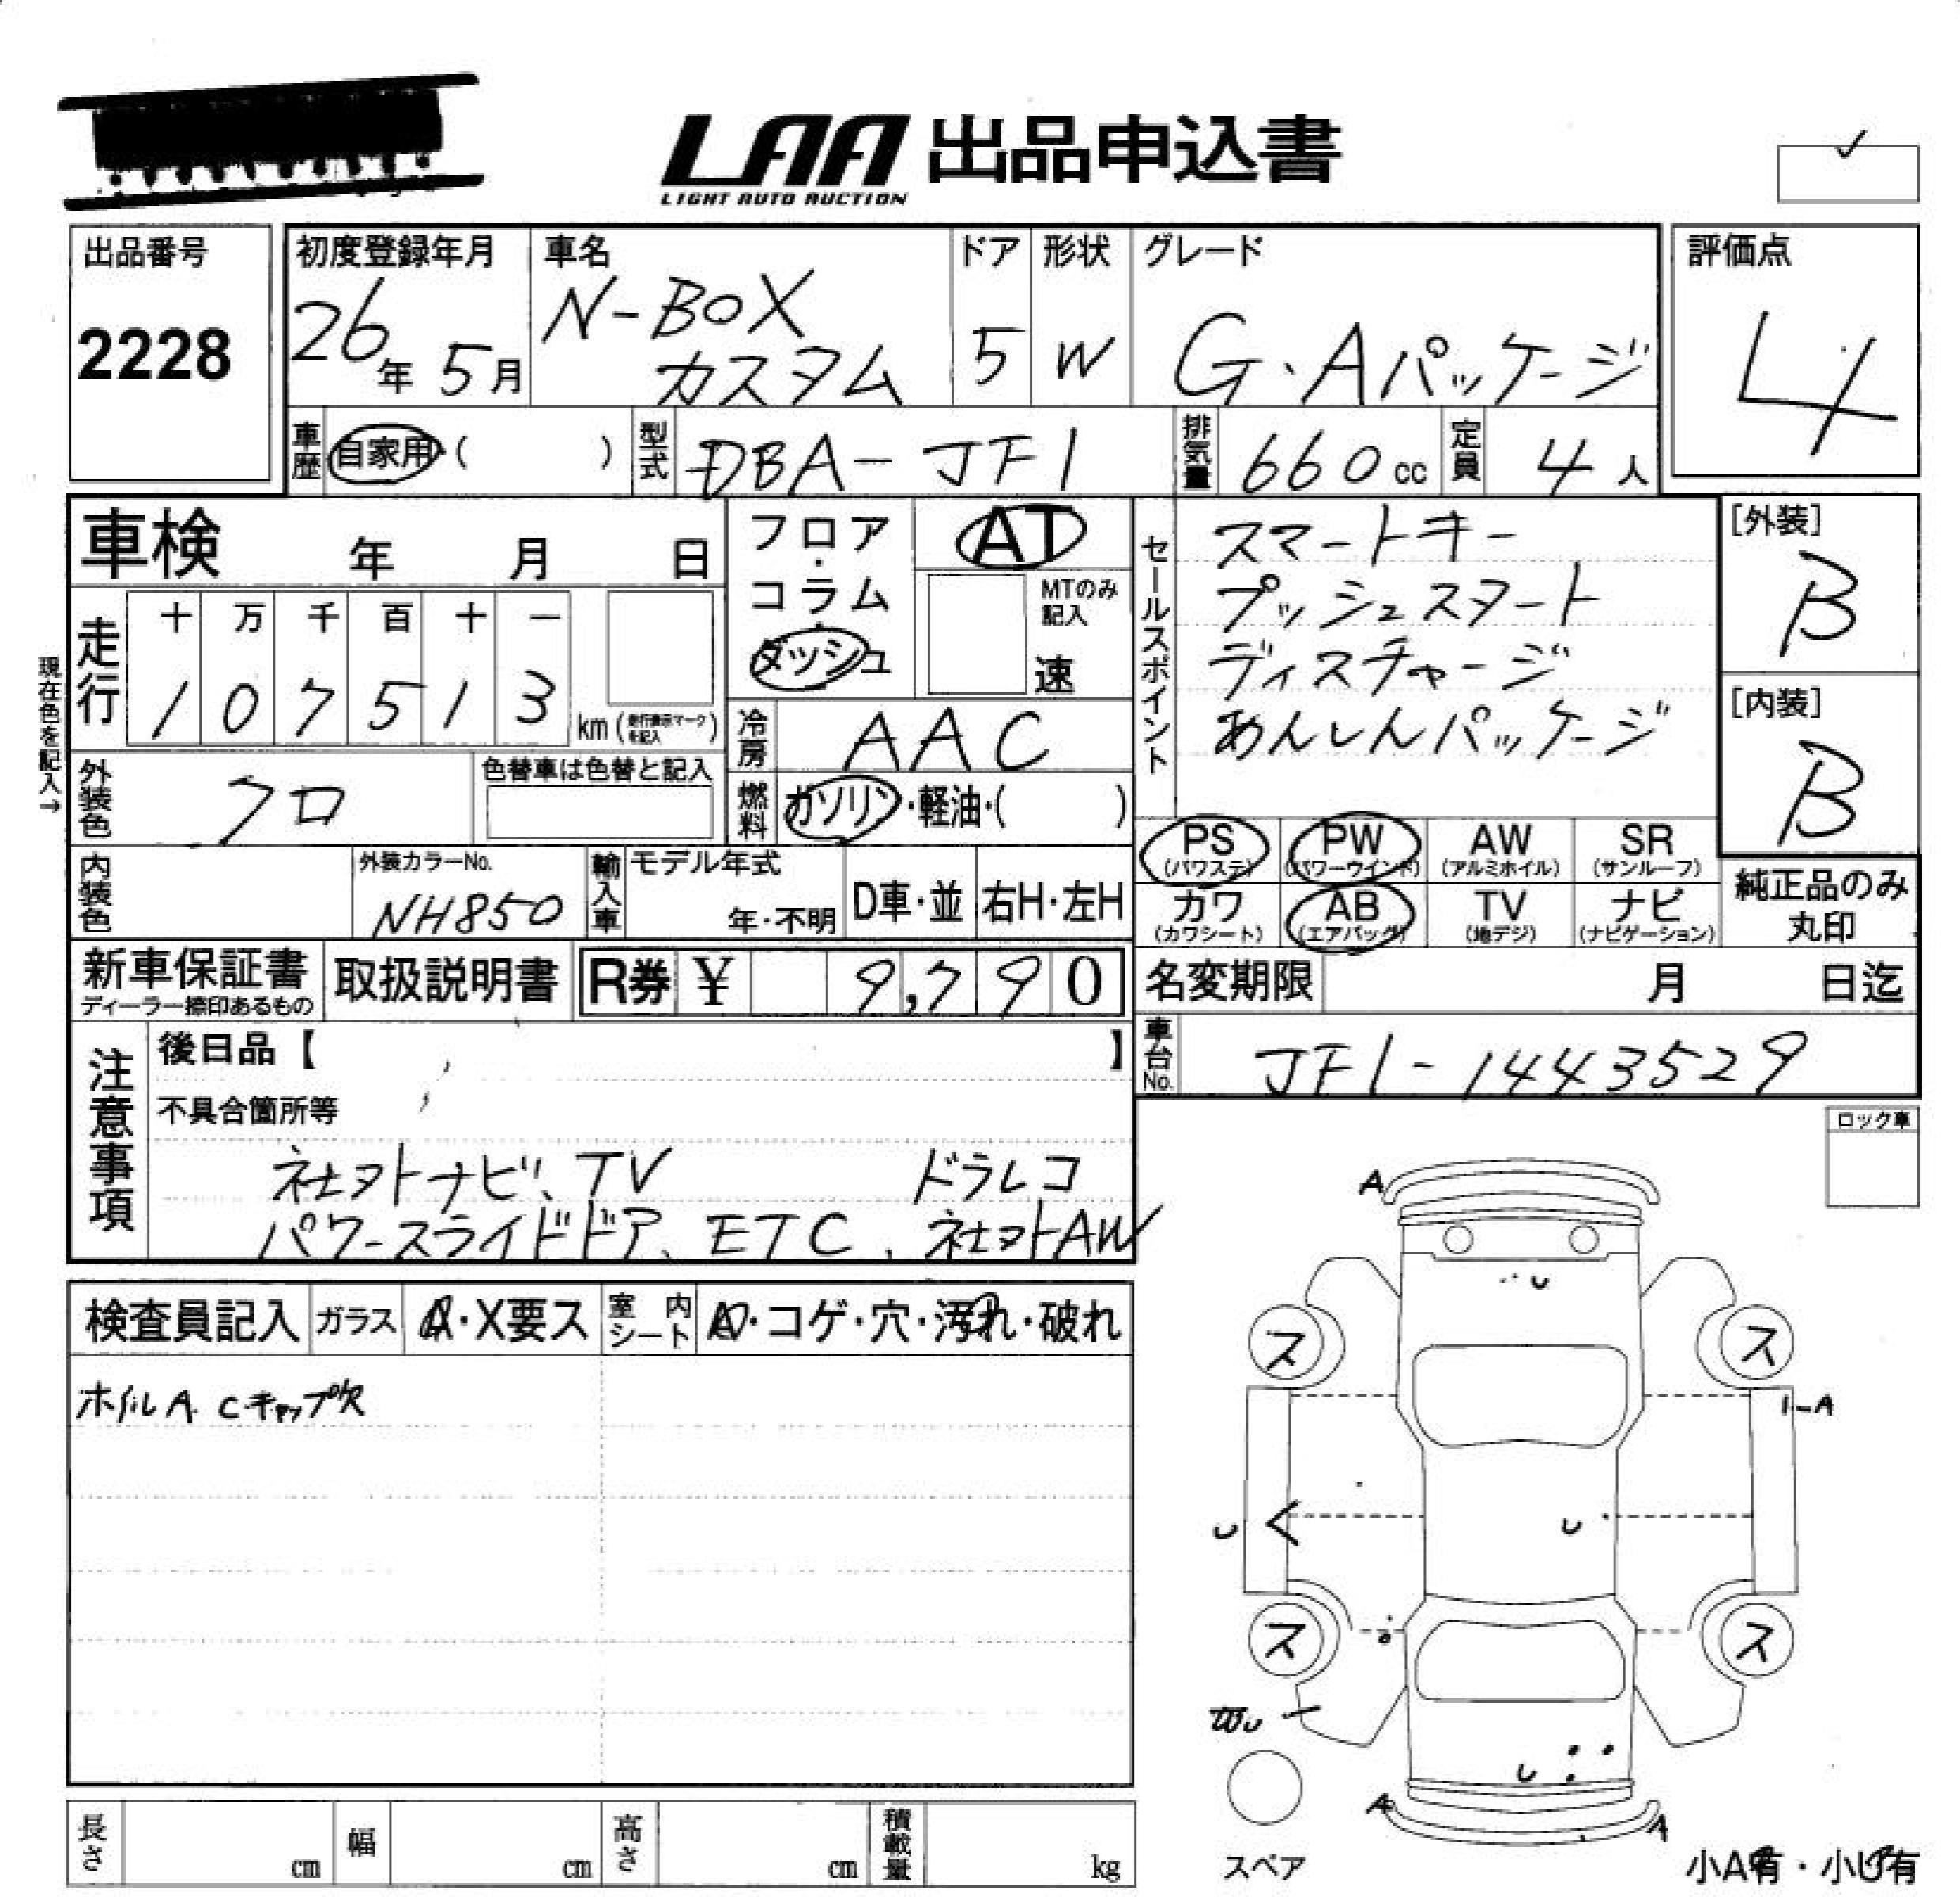 LAA 出品申込書
LIGHT AUTO AUCTION
出品番号
2228
初度登録年月
26年 5月
車名
N-BOX
カスタム
ドア
5
形状
W
グレード
G・Aパッケージ
評価点
4
車歴 自家用・( )
型式 DBA-JF1
排気量 660cc
定員 4人
車検 年 月 日
フロア・コラム・ダッシュ
AT
MTのみ記入
速
走行
十 万 千 百 十 一
1 0 7 5 1 3 km (走行表示マークを記入)
現在色を記入→
冷房 AAC
外装色 クロ
色替車は色替と記入
燃料 ガソリン・軽油・( )
内装色
外装カラーNo.
NH850
輸入車 モデル年式
年・不明
D車・並
右H・左H
セールスポイント
スマートキー
プッシュスタート
ディスチャージ
あんしんパッケージ
[外装]
B
[内装]
B
PS (パワステ)
PW (パワーウインド)
AW (アルミホイル)
SR (サンルーフ)
カワ (カワシート)
AB (エアバッグ)
TV (地デジ)
ナビ (ナビゲーション)
純正品のみ
丸印
新車保証書
ディーラー捺印あるもの
取扱説明書
R券 ¥ 9,790
名変期限 月 日迄
車台No. JF1-1443529
注意事項
後日品【 】
不具合箇所等
社外ナビ、TV ドラレコ
パワースライドドア、ETC、社外AW
検査員記入
ガラス A・X要ス
室内シート ・コゲ・穴・汚れ・破れ
ホイルA Cキャップ欠
ロック車
A
U
ス ス
1-A
U U
ス ス
U
U
A A
スペア
小A有・小U有
長さ cm
幅 cm
高さ cm
積載量 kg